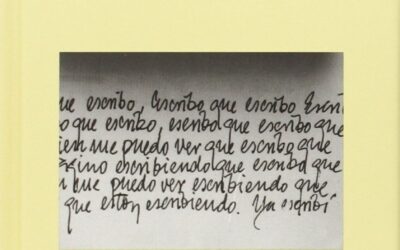 ue escribo, Escribo que escribo Escri
o que escribo, escribo que escribo que
ien me puedo ver que escribo que
escribiendo que escribo que
que puedo ver escribiendo que
que estoy escribiendo. Ya escribí